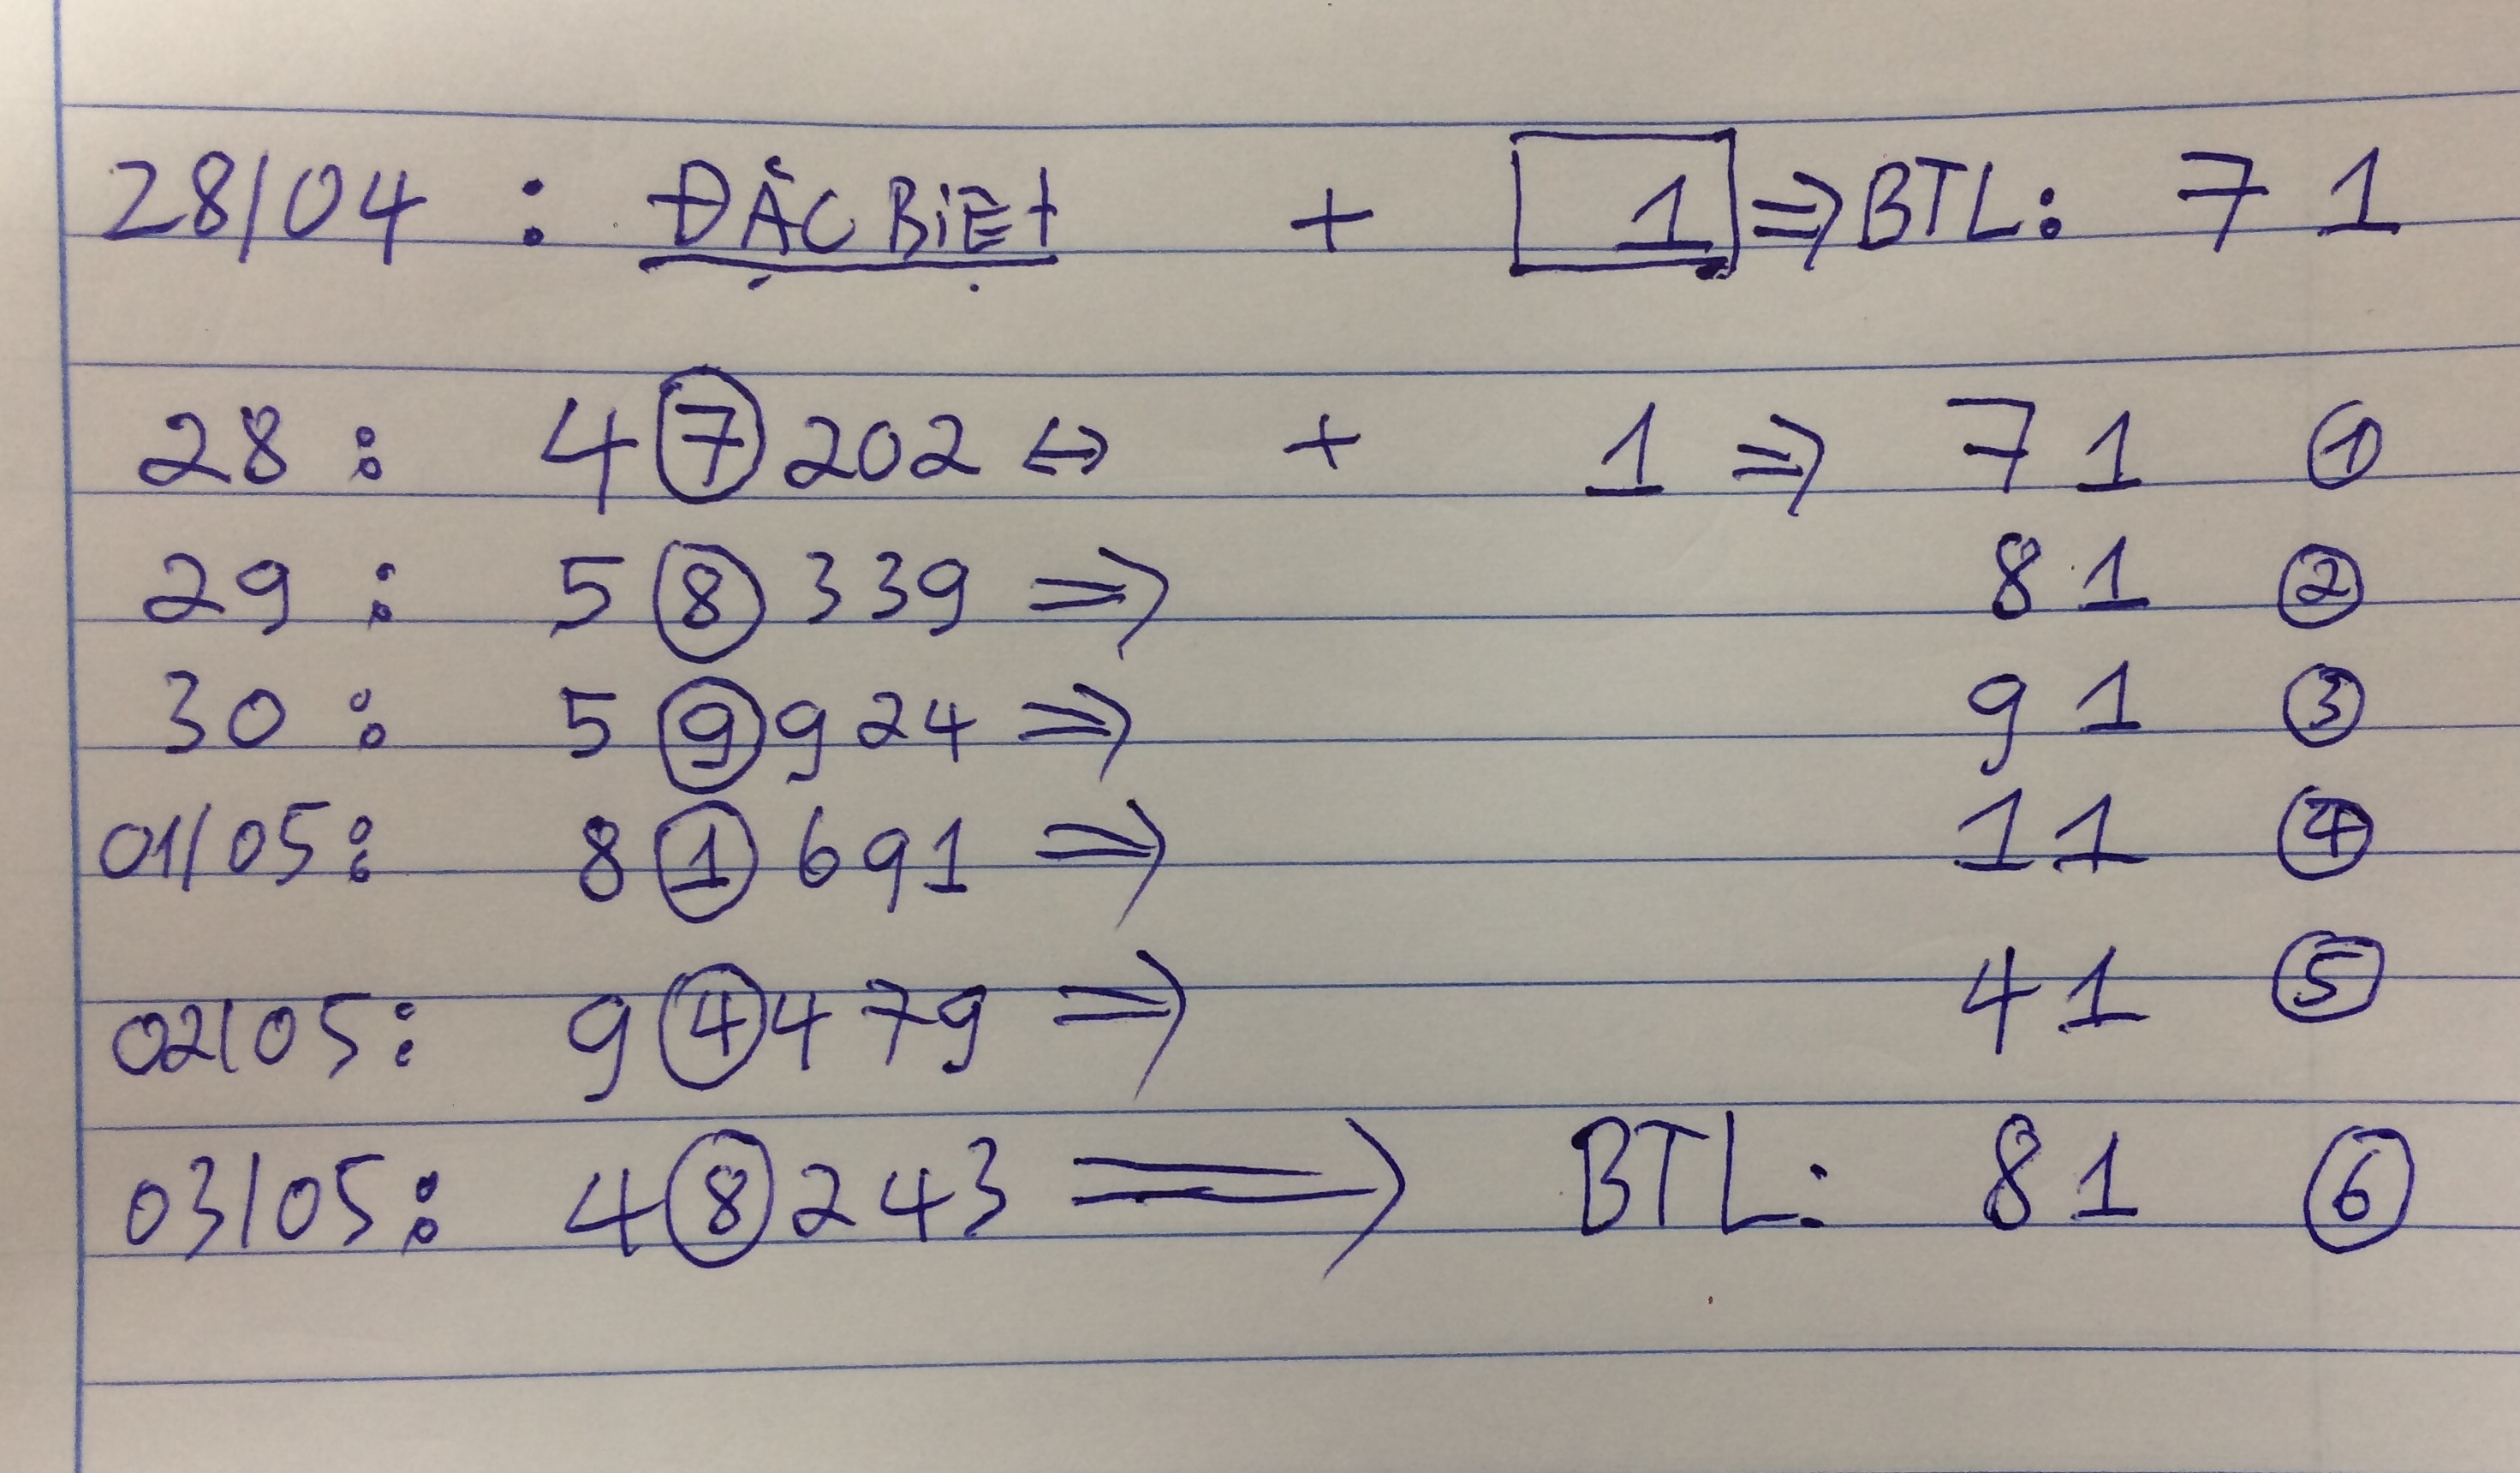 28/04 : ĐẶC BIỆt + 1 => BTL: 71
28 : 4 7 202 <-> + 1 => 71 ①
29 : 5 8 339 => 81 ②
30 : 5 9 924 => 91 ③
01/05 : 8 1 691 => 11 ④
02/05 : 9 4 479 => 41 ⑤
03/05 : 4 8 243 => BTL: 81 ⑥